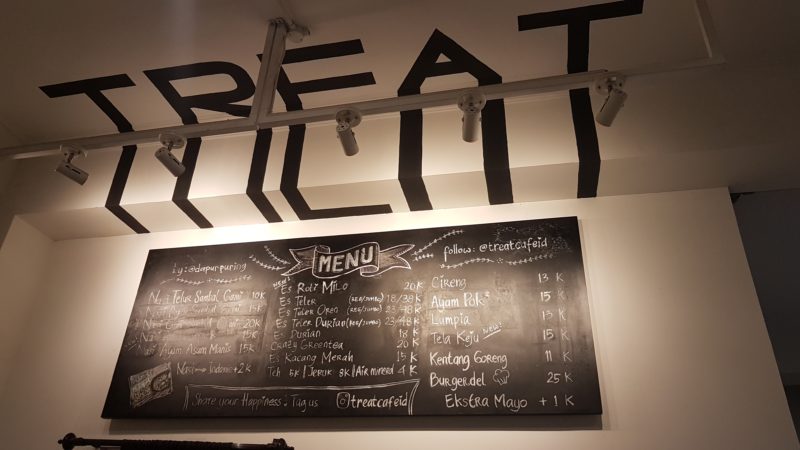 TREAT
MENU
by: @dapurpuring
Telur Sambal Cumi 10K
15K
20K
15K
Nasi Ayam Asam Manis 15K
Nasi → Indomie +2K
New!
Es Roti Milo 20K
Es Teler (REG/JUMBO) 18/38K
Es Teler Oren (REG/JUMBO) 23/48K
Es Teler Durian (REG/JUMBO) 23/48K
Es Durian 18K
Crazy Greentea 20K
Es Kacang Merah 15K
Teh 5K | Jeruk 8K | Air mineral 4K
follow: @treatcafeid
Cireng 13 K
Ayam Pok² 15 K
Lumpia 13 K
Tela Keju New! 15 K
Kentang Goreng 11 K
Burger del 25 K
Ekstra Mayo + 1 K
Share your Happiness! Tag us treatcafeid